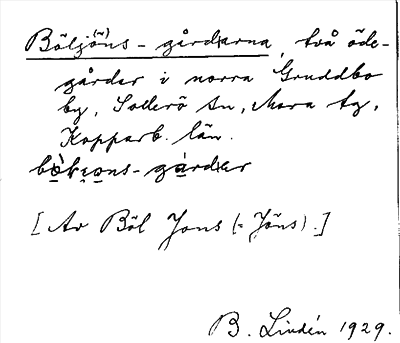 Böljo(n)ns-gårdarna, två öde-
gårdar i norra Gruddbo
by, Sollerö sn, Mora tg,
Kopparb. län.
bò̱ḷi̯o̱ns-gàrdar
[Av Böl Jons (= Jöns).]
B. Lindén 1929.